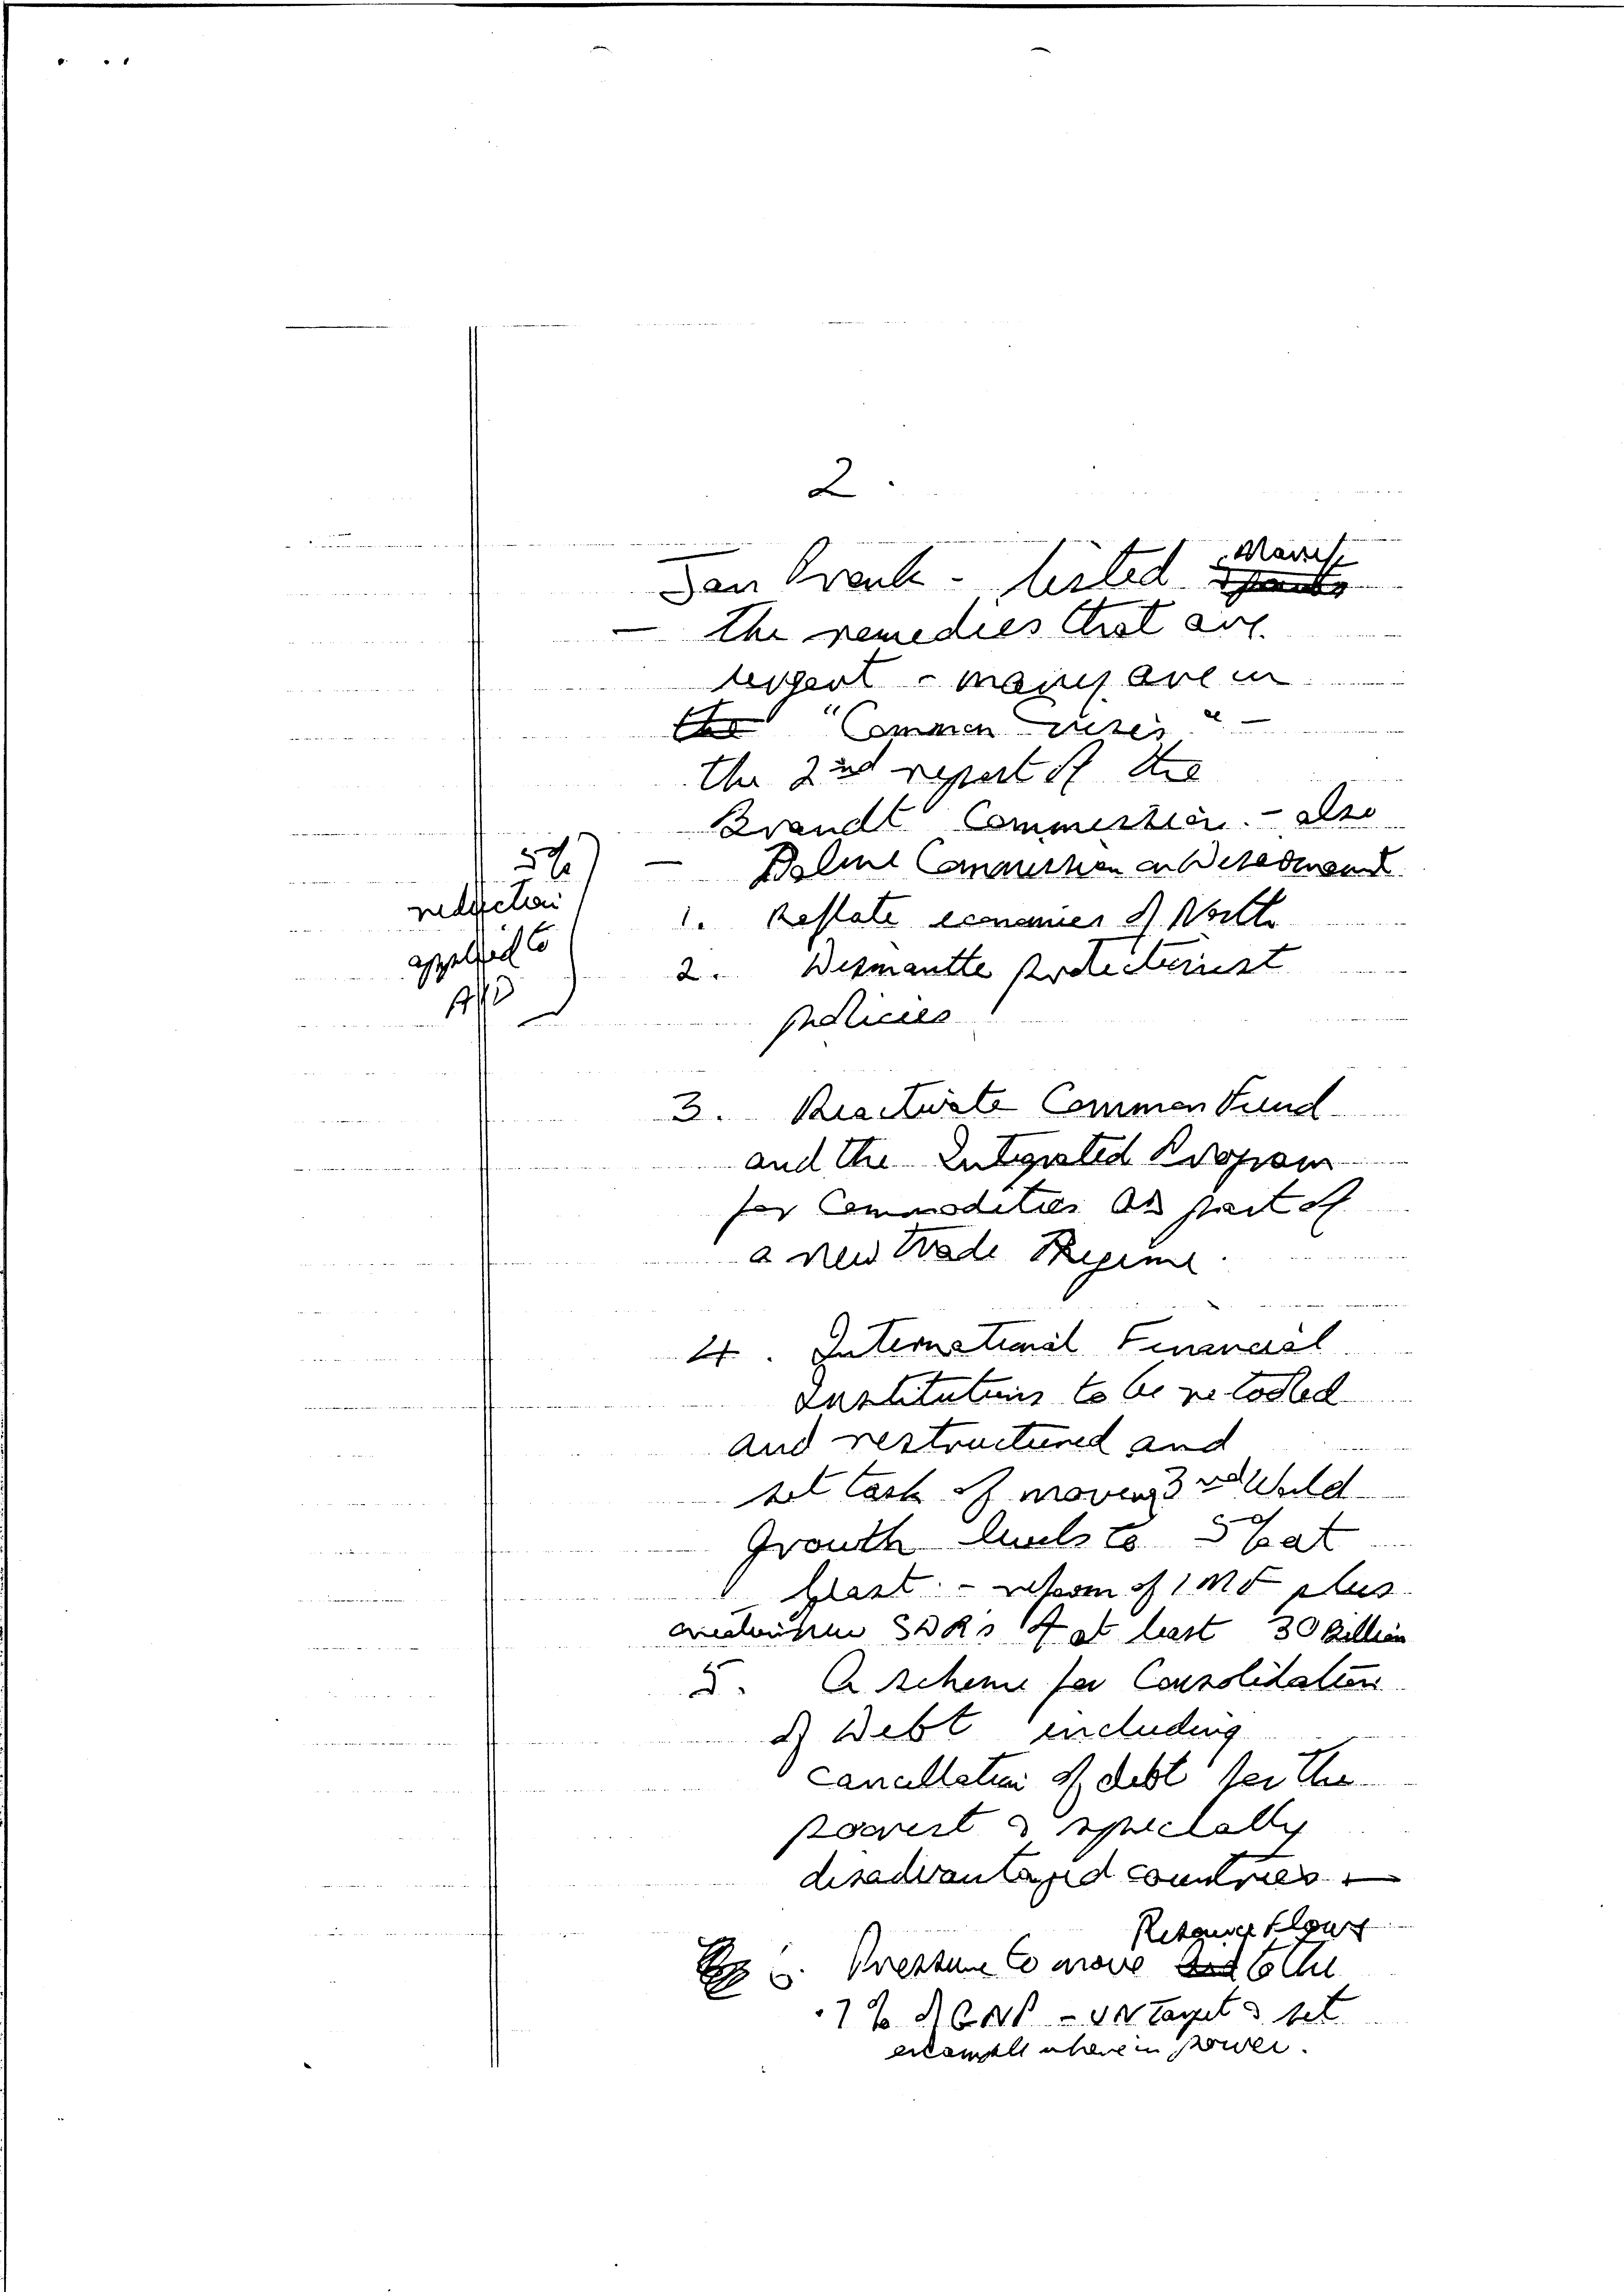 2.
Jan Pronk - listed
- The remedies that are
urgent - many are in
the "Common crisis" -
the 2nd report of the
Brandt Commission. - also
- Palme Commission on Disarmament
5%
reduction
applied to
1. Reflate economies of North
2. Dismantle protectionist
policies
3. Reactivate Common Fund
and the Integrated Program
for Commodities as part of
a new trade Regime.
4. International Financial
Institutions to be retooled
and restructured and
set task of moving 3rd World
Growth levels to 5% at
least. - reform of IMF plus
SDRs of at least 30 Billion
5. A scheme for Consolidation
of Debt including
cancellation of debt for the
poorest & specially
disadvantaged countries.
Resource flows
6. Pressure to move to the
.7% of GNP - UN target & set
example where in power.